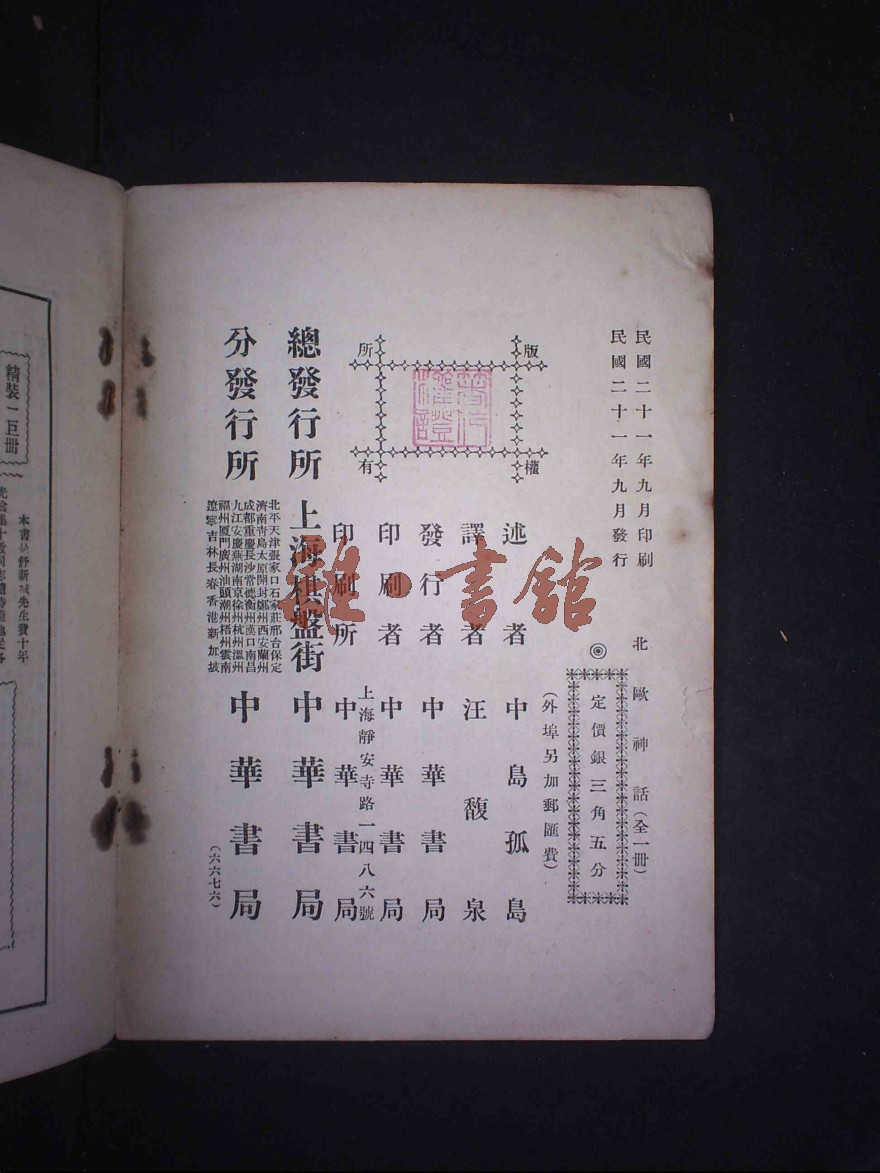 民國二十一年九月印刷
民國二十一年九月發行
北歐神話（全一冊）
◎
定價銀三角五分
（外埠另加郵匯費）
版權
所有
述者 中島孤島
譯者 汪馥泉
發行者 中華書局
印刷者 中華書局
上海靜安寺路一四八六號
印刷所 中華書局
總發行所 上海棋盤街 中華書局
分發行所
北平天津張家口石家莊邢台保定
濟南青島太原開封鄭州西安蘭州
成都重慶長沙常德衡州漢口南昌
九江安慶蕪湖南京徐州杭州溫州
福州廈門廣州汕頭潮州梧州雲南
遼寧吉林長春香港新加坡
中華書局
（六六七六）
雜·書館
精裝一巨冊
本書
舒新城先生費十年